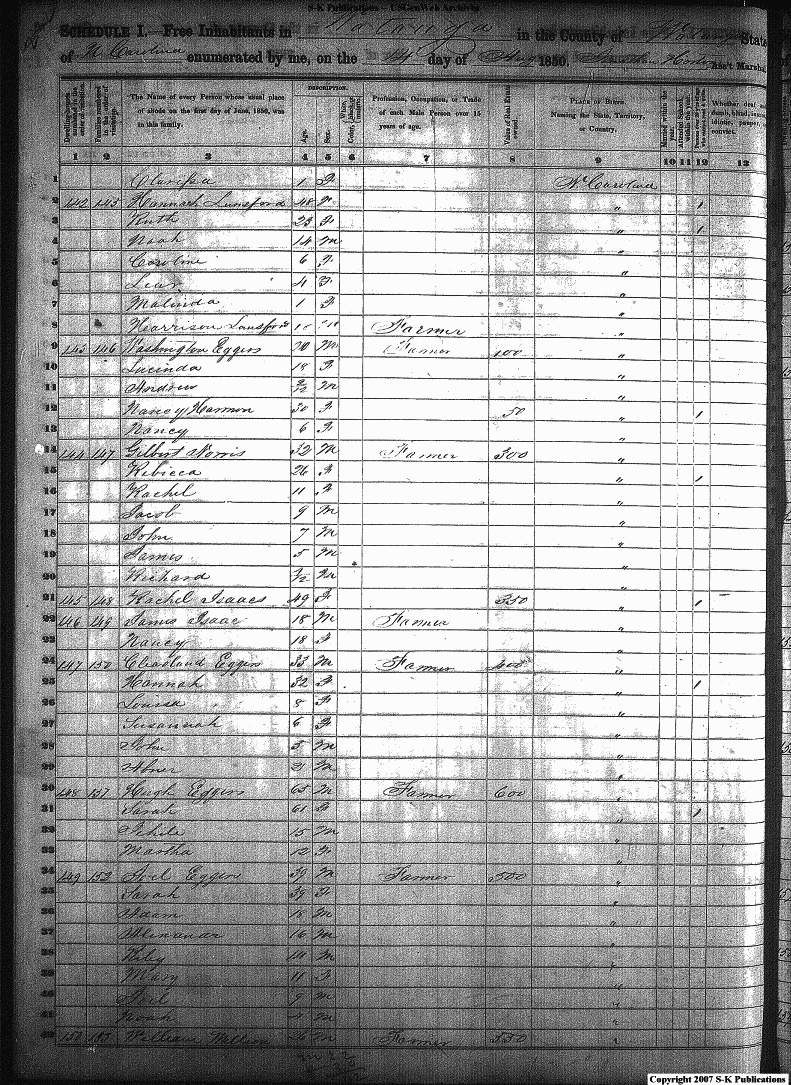 S-K Publications – USGenWeb Archives
SCHEDULE I. Free Inhabitants in Watauga in the County of Watauga State
of N. Carolina enumerated by me, on the 14 day of Aug 1850. Ass't Marshal
DESCRIPTION.
Dwelling-houses numbered in the order of visitation. Families numbered in the order of visitation. The Name of every Person whose usual place of abode on the first day of June, 1850, was in this family. Age. Sex. White, black, or mulatto. Profession, Occupation, or Trade of each Male Person over 15 years of age. Value of Real Estate owned. PLACE OF BIRTH. Naming the State, Territory, or Country. Married within the year. Attended School within the year. Whether deaf and dumb, blind, insane, idiotic, pauper, or convict.
1 2 3 4 5 6 7 8 9 10 11 12 13
1 Clarissa 1 F N. Carolina
2 142 145 Hannah Lunsford 48 F " 1
3 Ruth 23 F " 1
4 Noah 14 M "
5 Caroline 6 F "
6 4 F "
7 Malinda 1 F "
8 Harrison Lunsford M Farmer "
9 143 146 Washington Eggers 20 M Farmer 100 "
10 Lucinda 18 F "
11 Andrew M "
12 Nancy Harmon 30 F 50 " 1
13 Nancy 6 F "
14 144 147 Gilbert Norris 32 M Farmer 300 "
15 Rebicca 26 F " 1
16 Rachel 11 F "
17 Jacob 9 M "
18 John 7 M "
19 James 5 M "
20 Richard M "
21 145 148 Rachel Isaacs 49 F 350 " 1
22 146 149 James Isaac 18 M Farmer "
23 Nancy 18 F "
24 147 150 Cleaveland Eggers 33 M Farmer 400 "
25 Hannah 32 F " 1
26 Louisa 8 F "
27 Susannah 6 F "
28 John 5 M "
29 Abner M "
30 148 151 Hugh Eggers 65 M Farmer 600 "
31 Sarah 61 F " 1
32 15 M "
33 Martha 12 F "
34 149 152 Joel Eggers 39 M Farmer 500 "
35 Sarah 39 F "
36 Adam 18 M "
37 16 M "
38 Riley 14 M "
39 Mary 11 F "
40 Joel 9 M "
41 Noah 4 M "
42 150 153 William M Farmer 550 "
Copyright 2007 S-K Publications